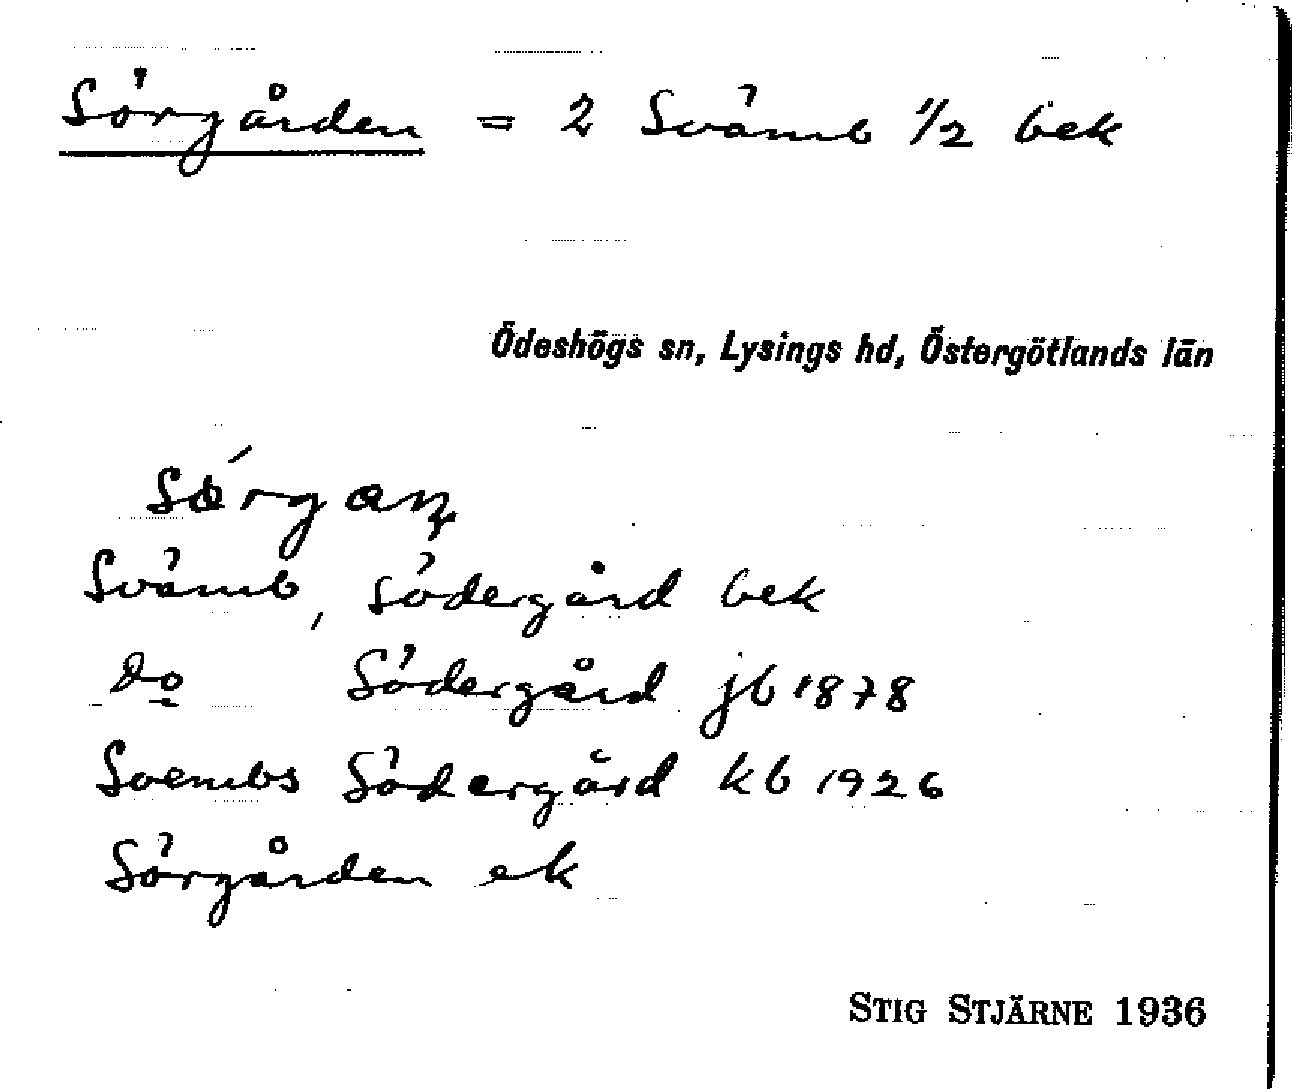 Sörgården = 2 Svämb 1/2 bek
Ödeshögs sn, Lysings hd, Östergötlands län
Svämb, Södergård bek
do Södergård jb 1878
Svembs Södergård kb 1926
Sörgården ek
STIG STJÄRNE 1936